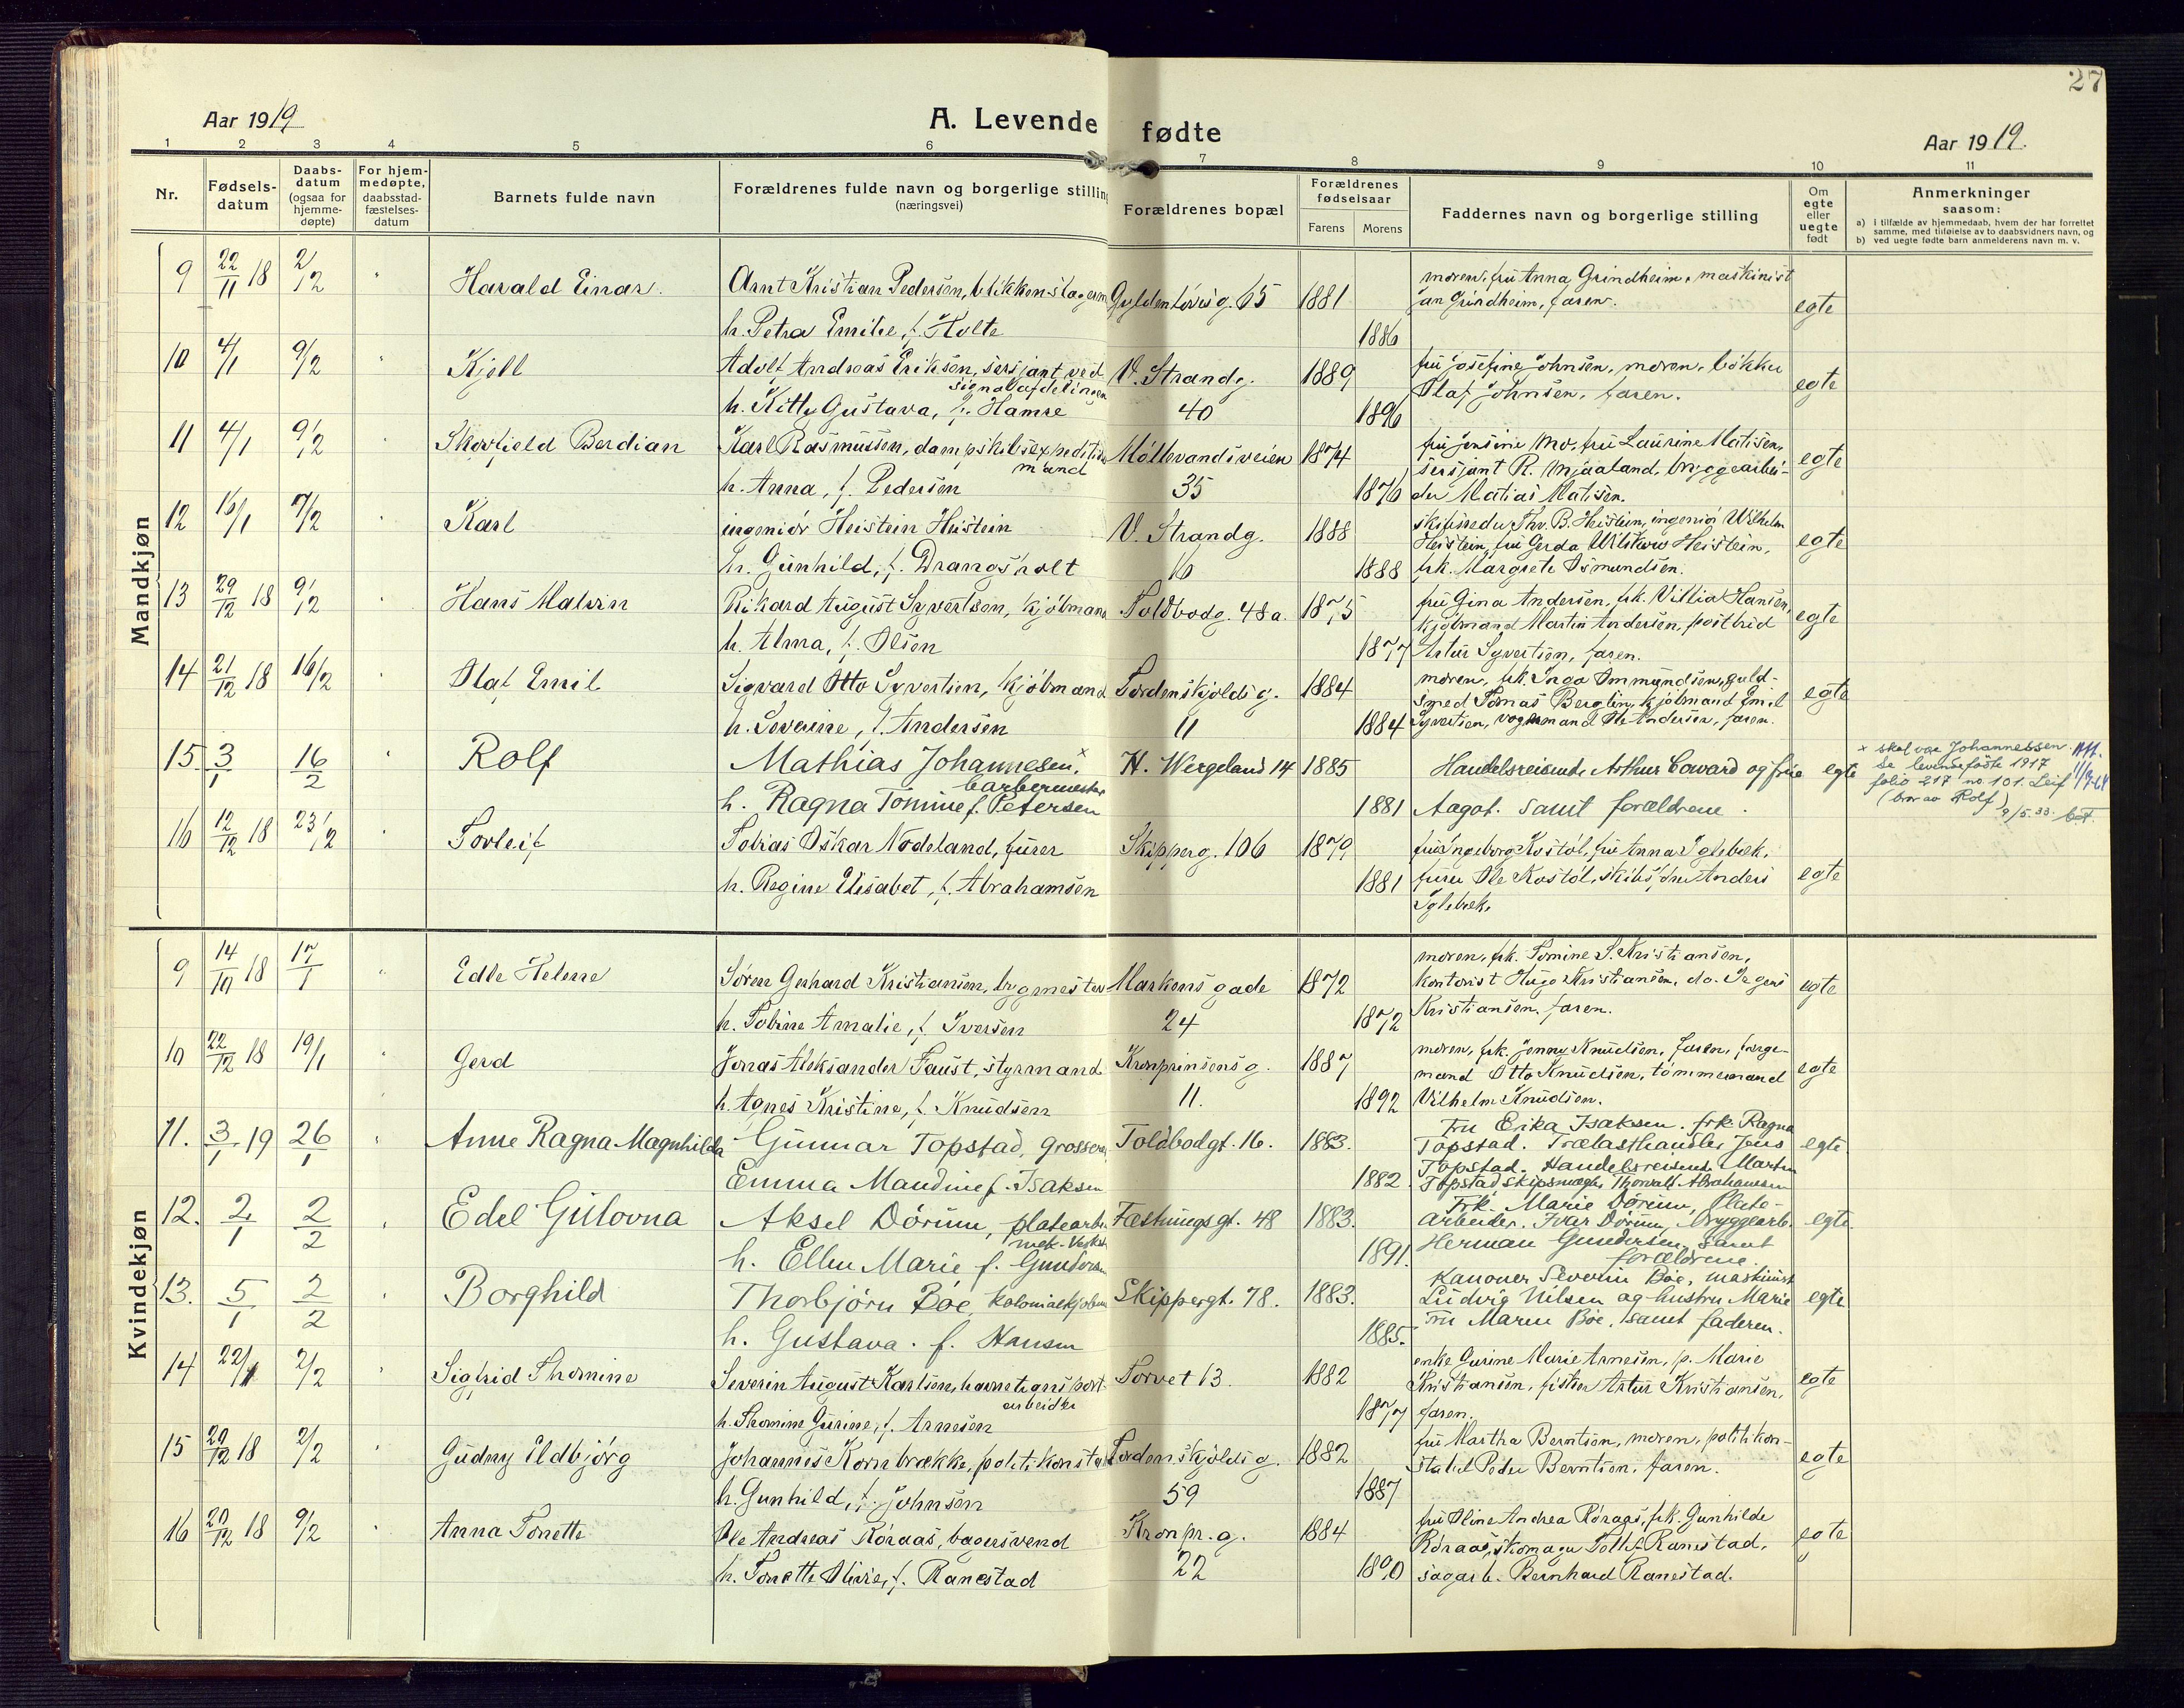 27
Aar 1919
A. Levende fødte
Aar 1919.
1 2 3 4 5 6 7 8 9 10 11
Nr.
Fødsels-datum
Daabs-datum (ogsaa for hjemme-døpte)
For hjem-medøpte, daabsstad-fæstelses-datum
Barnets fulde navn
Forældrenes fulde navn og borgerlige stilling (næringsvei)
Forældrenes bopæl
Forældrenes fødselsaar
Farens Morens
Faddernes navn og borgerlige stilling
Om egte eller uegte født
Anmerkninger saasom:
a) i tilfælde av hjemmedaab, hvem der har forrettet samme, med tilføielse av to daabsvidners navn, og
b) ved uegte fødte barn anmelderens navn m. v.
Mandkjøn
9 22/11 18 2/12 Harald Einar. Arnt Kristian Pedersen, blikkenslagerm Gyldenløvesg. 65 1881 moren, fru Anna Grindheim, maskinist
Jan Grindheim, faren. egte
h. Petra Emilie, f. Holte 1886
10 4/1 9/2 Kjell Adolf Andreas Eriksen, sersjant ved signalafdelingen V. Strandg. 1889 fru Josefine Johnsen, moren, bøkker
Olaf Johnsen, faren. egte
h. Kitty Gustava, f. Hamre 40 1896
11 4/1 9/2 Berdian Karl Rasmussen, dampskibsexpeditions mand Møllevandsveien 1874 fru Jensine Mo, fru Laurine Matisen,
sersjant R. Mjaaland, bryggearbei- egte
h. Anna, f. Pedersen 35 1876 der Matias Matisen.
12 16/1 7/2 Karl ingeniør Heistein Heistein V. Strandg. 1888 skibsreder Thv. B. Heistein, ingeniør Wilhelm
Heistein, fru Gerda Heistein, egte
h. Gunhild, f. Drangsholt 16 1888 frk. Margrete Osmundsen.
13 29/12 18 9/2 Hans Malvin Rikard August Syvertsen, kjøbmand Toldbodg. 48a. 1875 fru Gina Andersen, frk. Villia Hansen,
kjøbmand Martin Andersen, postbud egte
h. Alma, f. Olsen 1877 Artur Syvertsen, faren.
14 21/12 18 16/2 Olaf Emil Sigvard Otto Syvertsen, kjøbmand Tordenskjoldsg. 1884 moren, frk. Inga Ommundsen, guld-
smed Tomas Berglin, kjøbmand Emil egte
h. Severine, f. Andersen 11 1884 Syvertsen, vognmand Ole Andersen, faren.
15. 3/1 16/2 Rolf Mathias Johannesen, x barbermester H. Wergeland 14 1885 Handelsreisende Arthur Coward og frue egte
h. Ragna Tomine f. Petersen 1881 Aagot. samt forældrene.
x skal være Johannessen.
Se levendefødte 1917
folio 217 no. 101. Leif
(bror av Rolf)
9/5.33.
16 12/12 18 23/2 Torleif Tobias Oskar Nodeland, furer Skipperg. 106 1879 fru Ingeborg Kostøl, fru Anna Iglebæk,
h. Regine Elisabet, f. Abrahamsen 1881 furer Ole Kostøl, Anders egte
Iglebæk.
Kvindekjøn
9 14/10 18 17/1 Edle Helene Søren Gerhard Kristiansen, bygmester Markens gade 1872 moren, frk. Tomine S. Kristiansen,
kontorist Hugo Kristiansen, do. Segers egte
h. Tobine Amalie, f. Iversen 24 1872 Kristiansen, faren.
10 22/12 18 19/1 Gerd Jonas Aleksander Faust, styrmand Kronprinsensg. 1887 moren, frk. Jenny Knudsen, faren, færge-
mand Otto Knudsen, tømmermand egte
h. Agnes Kristine, f. Knudsen 11. 1892 Vilhelm Knudsen.
11. 3/1 19 26/1 Anne Ragna Magnhilda Gunnar Topstad, grosserer Toldbodgt. 16. 1883. Fru Erika Isaksen. frk. Ragna
Topstad. Trælasthandler Jens egte
Emma Maudine f. Isaksen 1882. Topstad. Handelsreisende Martin
Topstad skipsmægler Thorvald Abrahamsen
12. 2/1 2/2 Edel Gulovna Aksel Dørum, platearb. mek. Verksted Fæstningsgt. 48 1883. Frk. Marie Dørum, Plate-
arbeider. Ivar Dørum, bryggearb. egte.
h. Ellen Marie f. Gundersen 1891. Herman Gundersen, samt
forældrene.
13. 5/1 2/2 Borghild Thorbjørn Bøe, Kolonialkjøbm. Skippergt. 78. 1883. Kanoner Severin Bøe, maskinist
Ludvig Nilsen og hustru Marie egte
h. Gustava. f. Hansen 1885. Fru Maren Bøe, samt faderen.
14 22/1 2/2 Sigfrid Thomine Severin August Karlsen, havnetransport arbeider Torvet 13. 1882 enke Gurine Marie Arnesen, p. Marie
Kristiansen, fisker Artur Kristiansen, egte
h. Thomine Gurine, f. Arnesen 1877 faren.
15 20/12 18 2/2 Gudny Eldbjørg Johannes Kornbrække, politikonstabel Tordenskjoldsg. 1882 fru Martha Berntsen, moren, politikon-
stabel Peder Berntsen, faren. egte
h. Gunhild, f. Johnsen 59 1887
16 20/12 18 9/2 Anna Tonette Ole Andreas Røraas, bagersvend Kronpr. g. 1884 fru Oline Andrea Røraas, frk. Gunhilde
Røraas, skomager Tollef Ranestad, egte
h. Tonette Olivie, f. Ranestad 22 1890 sagarb. Bernhard Ranestad.